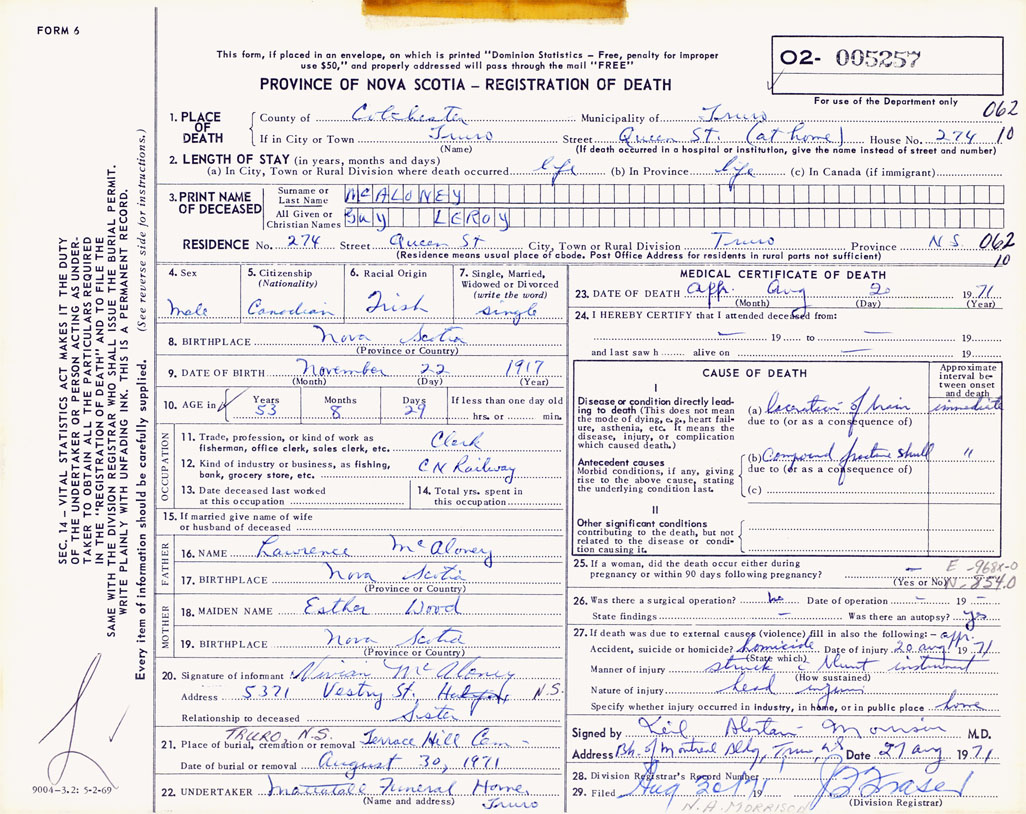 FORM 6
This form, if placed in an envelope, on which is printed "Dominion Statistics – Free, penalty for improper
use $50," and properly addressed will pass through the mail "FREE"
PROVINCE OF NOVA SCOTIA – REGISTRATION OF DEATH
O2- 005257
For use of the Department only
062
10
1. PLACE OF DEATH
County of Colchester Municipality of Truro
If in City or Town Truro Street Queen St. (at home) House No. 274
(Name) (If death occurred in a hospital or institution, give the name instead of street and number)
2. LENGTH OF STAY (in years, months and days)
(a) In City, Town or Rural Division where death occurred life (b) In Province life (c) In Canada (if immigrant)
3. PRINT NAME OF DECEASED
Surname or Last Name McALONEY
All Given or Christian Names GUY LEROY
RESIDENCE No. 274 Street Queen St City, Town or Rural Division Truro Province N.S. 062
(Residence means usual place of abode. Post Office Address for residents in rural parts not sufficient) 10
4. Sex
Male
5. Citizenship (Nationality)
Canadian
6. Racial Origin
Irish
7. Single, Married, Widowed or Divorced (write the word)
single
8. BIRTHPLACE Nova Scotia
(Province or Country)
9. DATE OF BIRTH November 22 1917
(Month) (Day) (Year)
10. AGE in Years Months Days If less than one day old
53 8 29 hrs. or min.
OCCUPATION
11. Trade, profession, or kind of work as
fisherman, office clerk, sales clerk, etc. Clerk
12. Kind of industry or business, as fishing,
bank, grocery store, etc. CN Railway
13. Date deceased last worked
at this occupation
14. Total yrs. spent in
this occupation
15. If married give name of wife
or husband of deceased
FATHER
16. NAME Lawrence McAloney
17. BIRTHPLACE Nova Scotia
(Province or Country)
MOTHER
18. MAIDEN NAME Esther Wood
19. BIRTHPLACE Nova Scotia
(Province or Country)
20. Signature of informant Vivian McAloney
Address 5371 Vestry St. Halifax, N.S.
Relationship to deceased Sister
TRURO, N.S.
21. Place of burial, cremation or removal Terrace Hill Cem –
Date of burial or removal August 30, 1971
22. UNDERTAKER Mattatall Funeral Home
(Name and address) Truro
MEDICAL CERTIFICATE OF DEATH
23. DATE OF DEATH appr. Aug 20 1971
(Month) (Day) (Year)
24. I HEREBY CERTIFY that I attended deceased from:
— 19 — to — 19
and last saw h alive on — 19
CAUSE OF DEATH
Approximate interval between onset and death
I
Disease or condition directly leading to death (This does not
mean the mode of dying, e.g., heart failure, asthenia, etc. It means the
disease, injury, or complication which caused death.)
(a) laceration of brain immediate
due to (or as a consequence of)
Antecedent causes
Morbid conditions, if any, giving rise to the above cause, stating
the underlying condition last.
(b) Compound fracture skull "
due to (or as a consequence of)
(c)
II
Other significant conditions
contributing to the death, but not related to the disease or condition causing it.
25. If a woman, did the death occur either during
pregnancy or within 90 days following pregnancy? —
(Yes or No)
E -968x-0
N - 854.0
26. Was there a surgical operation? no Date of operation – 19 –
State findings – Was there an autopsy? yes
27. If death was due to external causes (violence) fill in also the following: – appr.
Accident, suicide or homicide? homicide Date of injury 20 aug 1971
(State which)
Manner of injury struck c blunt instrument
(How sustained)
Nature of injury head injury
Specify whether injury occurred in industry, in home, or in public place home
Signed by Morrison M.D.
Address Bk. of Montreal Bldg, Truro NS Date 27 aug 1971
28. Division Registrar's Record Number
29. Filed Aug 30 71 19 Fraser
(Division Registrar)
N.A. MORRISON
SEC. 14 – VITAL STATISTICS ACT MAKES IT THE DUTY
OF THE UNDERTAKER OR PERSON ACTING AS UNDER-
TAKER TO OBTAIN ALL THE PARTICULARS REQUIRED
IN THE "REGISTRATION OF DEATH" AND TO FILE THE
SAME WITH THE DIVISION REGISTRAR WHO SHALL ISSUE THE BURIAL PERMIT.
WRITE PLAINLY WITH UNFADING INK. THIS IS A PERMANENT RECORD.
Every item of information should be carefully supplied. (See reverse side for instructions.)
9004-3.2: 5-2-69